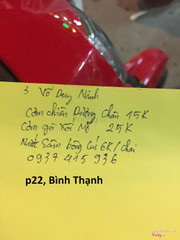 3 Võ Duy Ninh
Cơm chiên Dương Châu 15K
Cơm gà Xối Mỡ 25K
Nước Sâm bông Cúc 6K/chai
0937 415 936
p22, Bình Thạnh